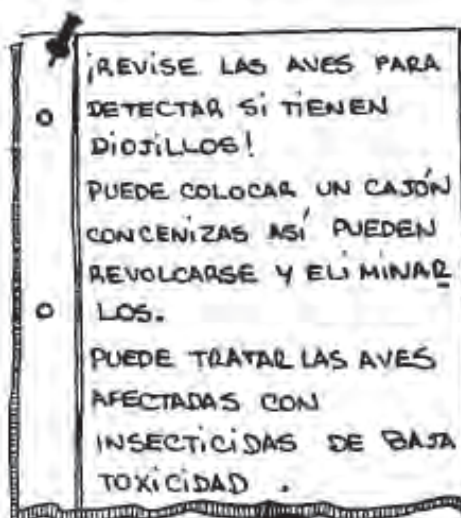 ¡REVISE LAS AVES PARA
DETECTAR SI TIENEN
DIOJILLOS!
PUEDE COLOCAR UN CAJÓN
CONCENIZAS ASÍ PUEDEN
REVOLCARSE Y ELIMINAR
LOS.
PUEDE TRATAR LAS AVES
AFECTADAS CON
INSECTICIDAS DE BAJA
TOXICIDAD .